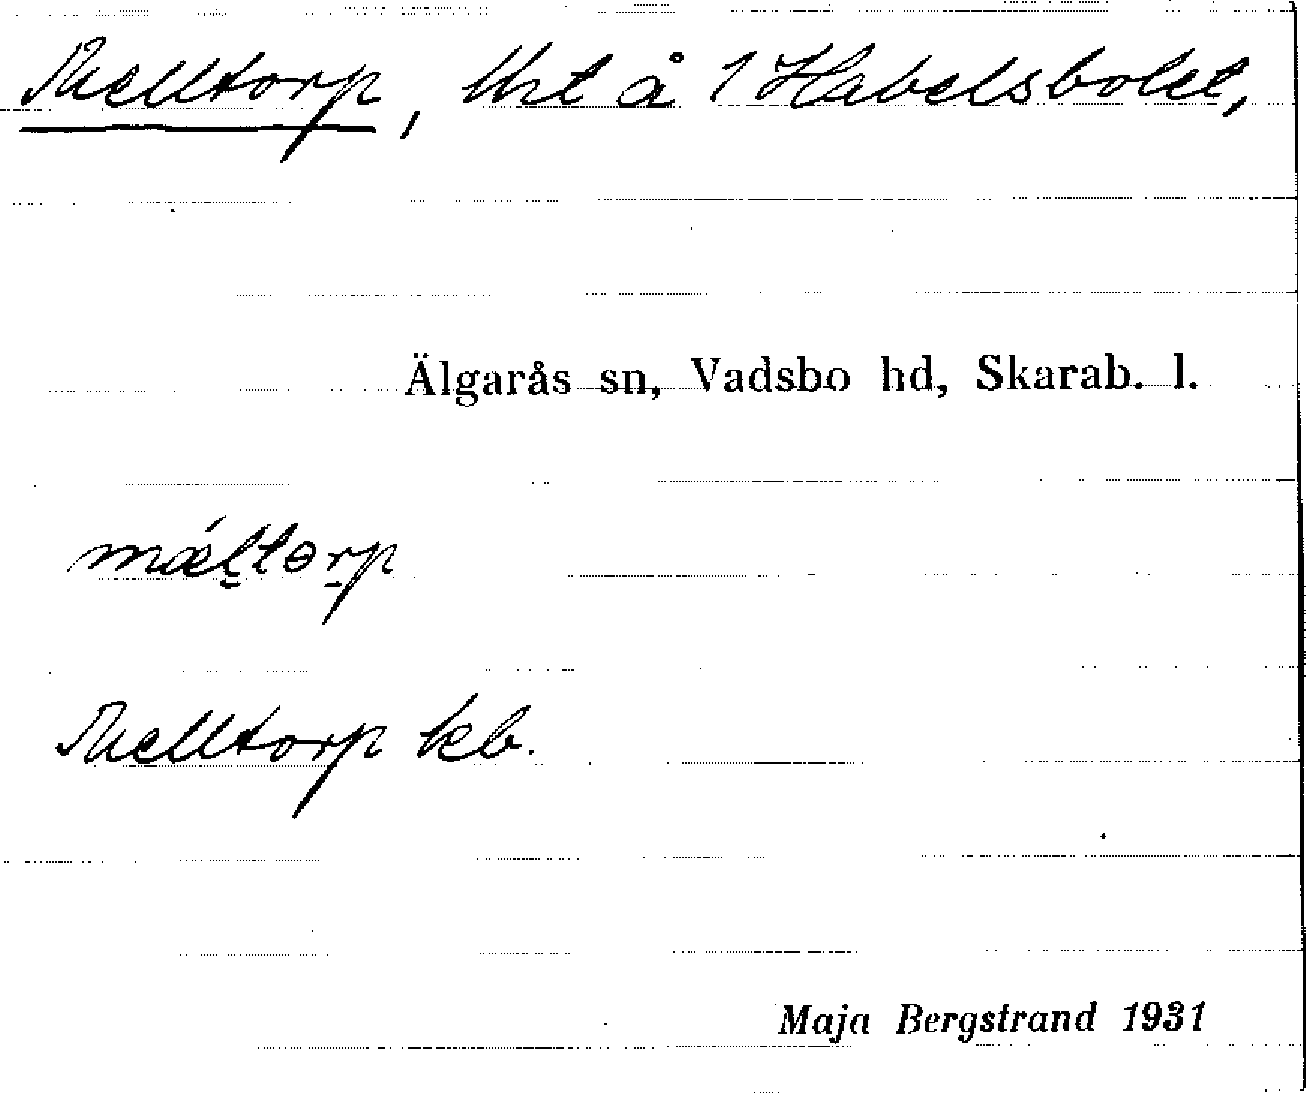 Melltorp, thrt å 1 Habelsbolet,
Älgarås sn, Vadsbo hd, Skarab. l.
mǽltorp
Melltorp kb.
Maja Bergstrand 1931